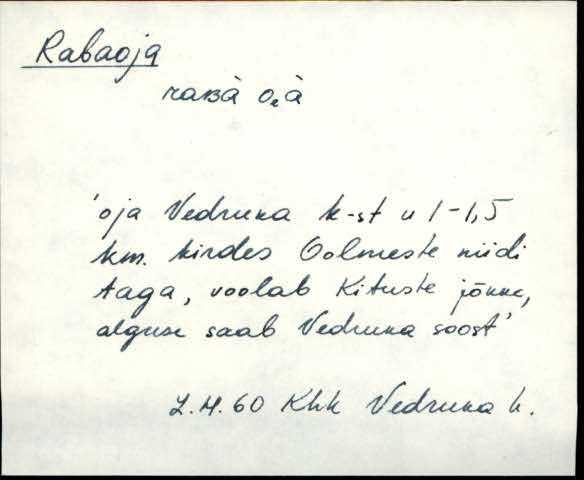 Rabaoja
raʙà oₑà
'oja Vedruka k-st u 1-1,5
km. kirdes Oolmeste niidi
taga, voolab Kituste jõkke,
alguse saab Vedruka soost'
L.M. 60 Khk Vedruka k.